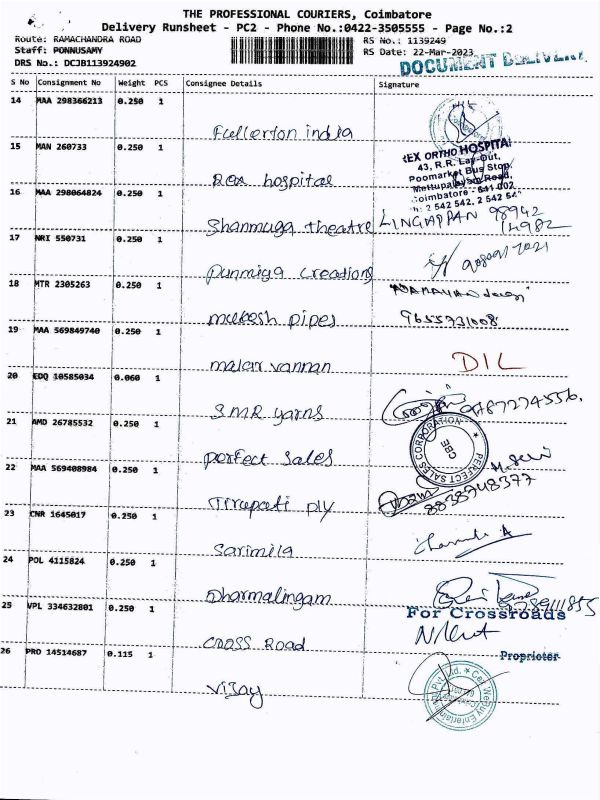 THE PROFESSIONAL COURIERS, Coimbatore
Delivery Runsheet - PC2 - Phone No.:0422-3505555 - Page No.:2
Route: RAMACHANDRA ROAD
Staff: PONNUSAMY
DRS No.: DCJB113924902
RS No.: 1139249
RS Date: 22-Mar-2023
DOCUMENT DELIVERY
S No Consignment No Weight PCS Consignee Details Signature
14 MAA 298366213 0.250 1
Fullerton india
15 MAN 260733 0.250 1
REX ORTHO HOSPITAL
43, R.R. Lay-Out,
Poomarket Bus Stop,
Mettupalayam Road,
Coimbatore - 641 002
2 542 542, 2 542 54
Rex hospital
16 MAA 298064824 0.250 1
Shanmuga theatre LINGAPPAN 98942
14982
17 NRI 550731 0.250 1
Punmiya creations
18 MTR 2305263 0.250 1
mukesh pipes 9655731008
19 MAA 569849740 0.250 1
malar vannan DIL
20 EDQ 10585034 0.060 1
SMR yarns 9787274556.
21 AMD 26785532 0.250 1
PERFECT SALES CORPORATION
CBE
perfect sales
22 MAA 569408984 0.250 1
Tirupati ply 8838948377
23 CNR 1645017 0.250 1
Sarimila
24 POL 4115824 0.250 1
Dharmalingam 9789111855
25 VPL 334632801 0.250 1
For Crossroads
cross Road
Proprietor
26 PRO 14514687 0.115 1
Vijay